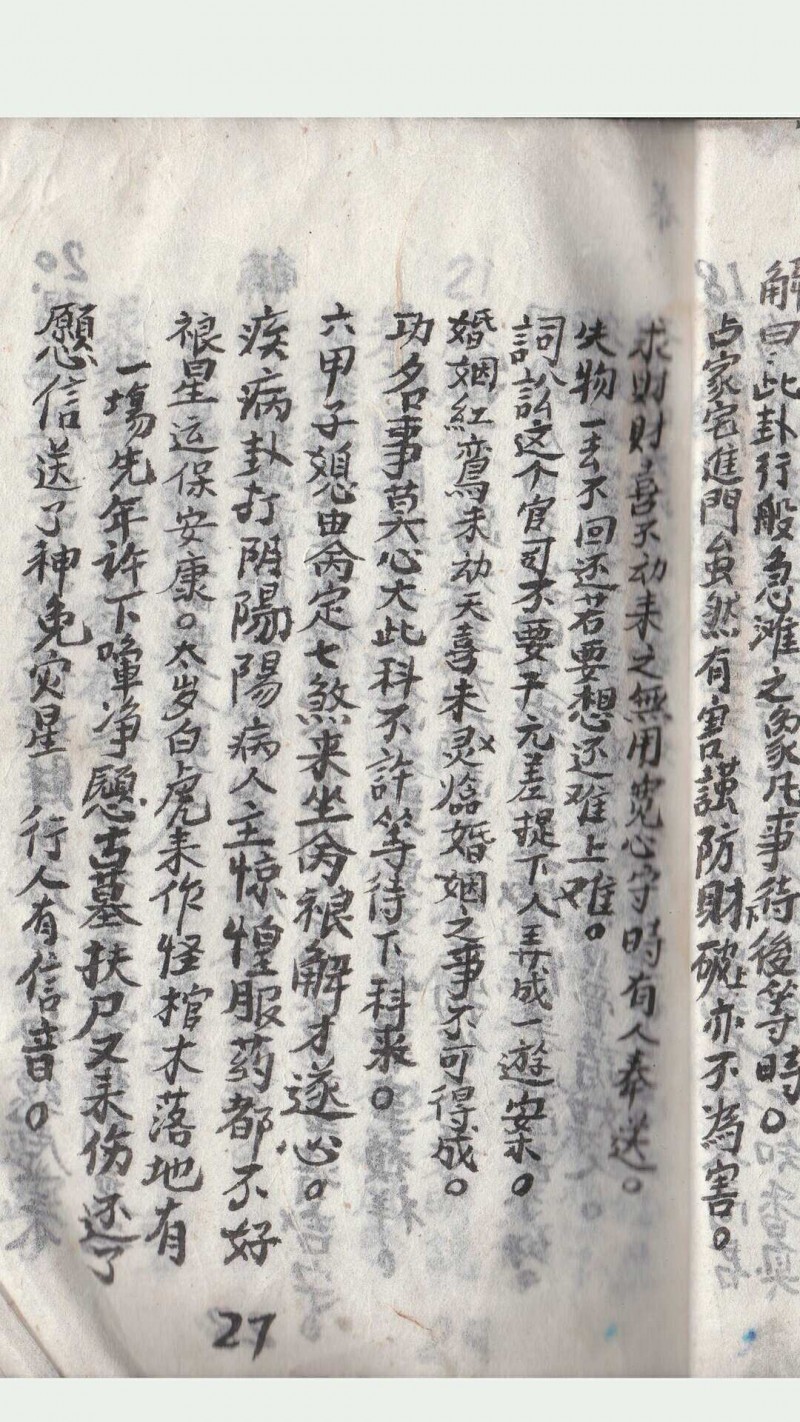 解曰此卦行般急滩之象凡事待後等時。
占家宅進門虽然有害謹防財破亦不為害。
求财财喜不动来之無用宽心守時有人奉送。
失物一去不回还若要想还难上难。
詞訟这个官司不要予元差提下人弄成一遊案。
婚姻紅鸞未动天喜未灵临婚姻之事不可得成。
功名事莫心大此科不許等待下科来。
六甲子媳由命定七煞来坐命禳解才遂心。
疾病卦打阴陽陽病人主惊惶服药都不好
禳星运保安康。太岁白虎来作怪棺木落地有
一塲先年许下啈净愿古墓扶尸又来伤还了
願心信送了神免灾星 行人有信音。
27